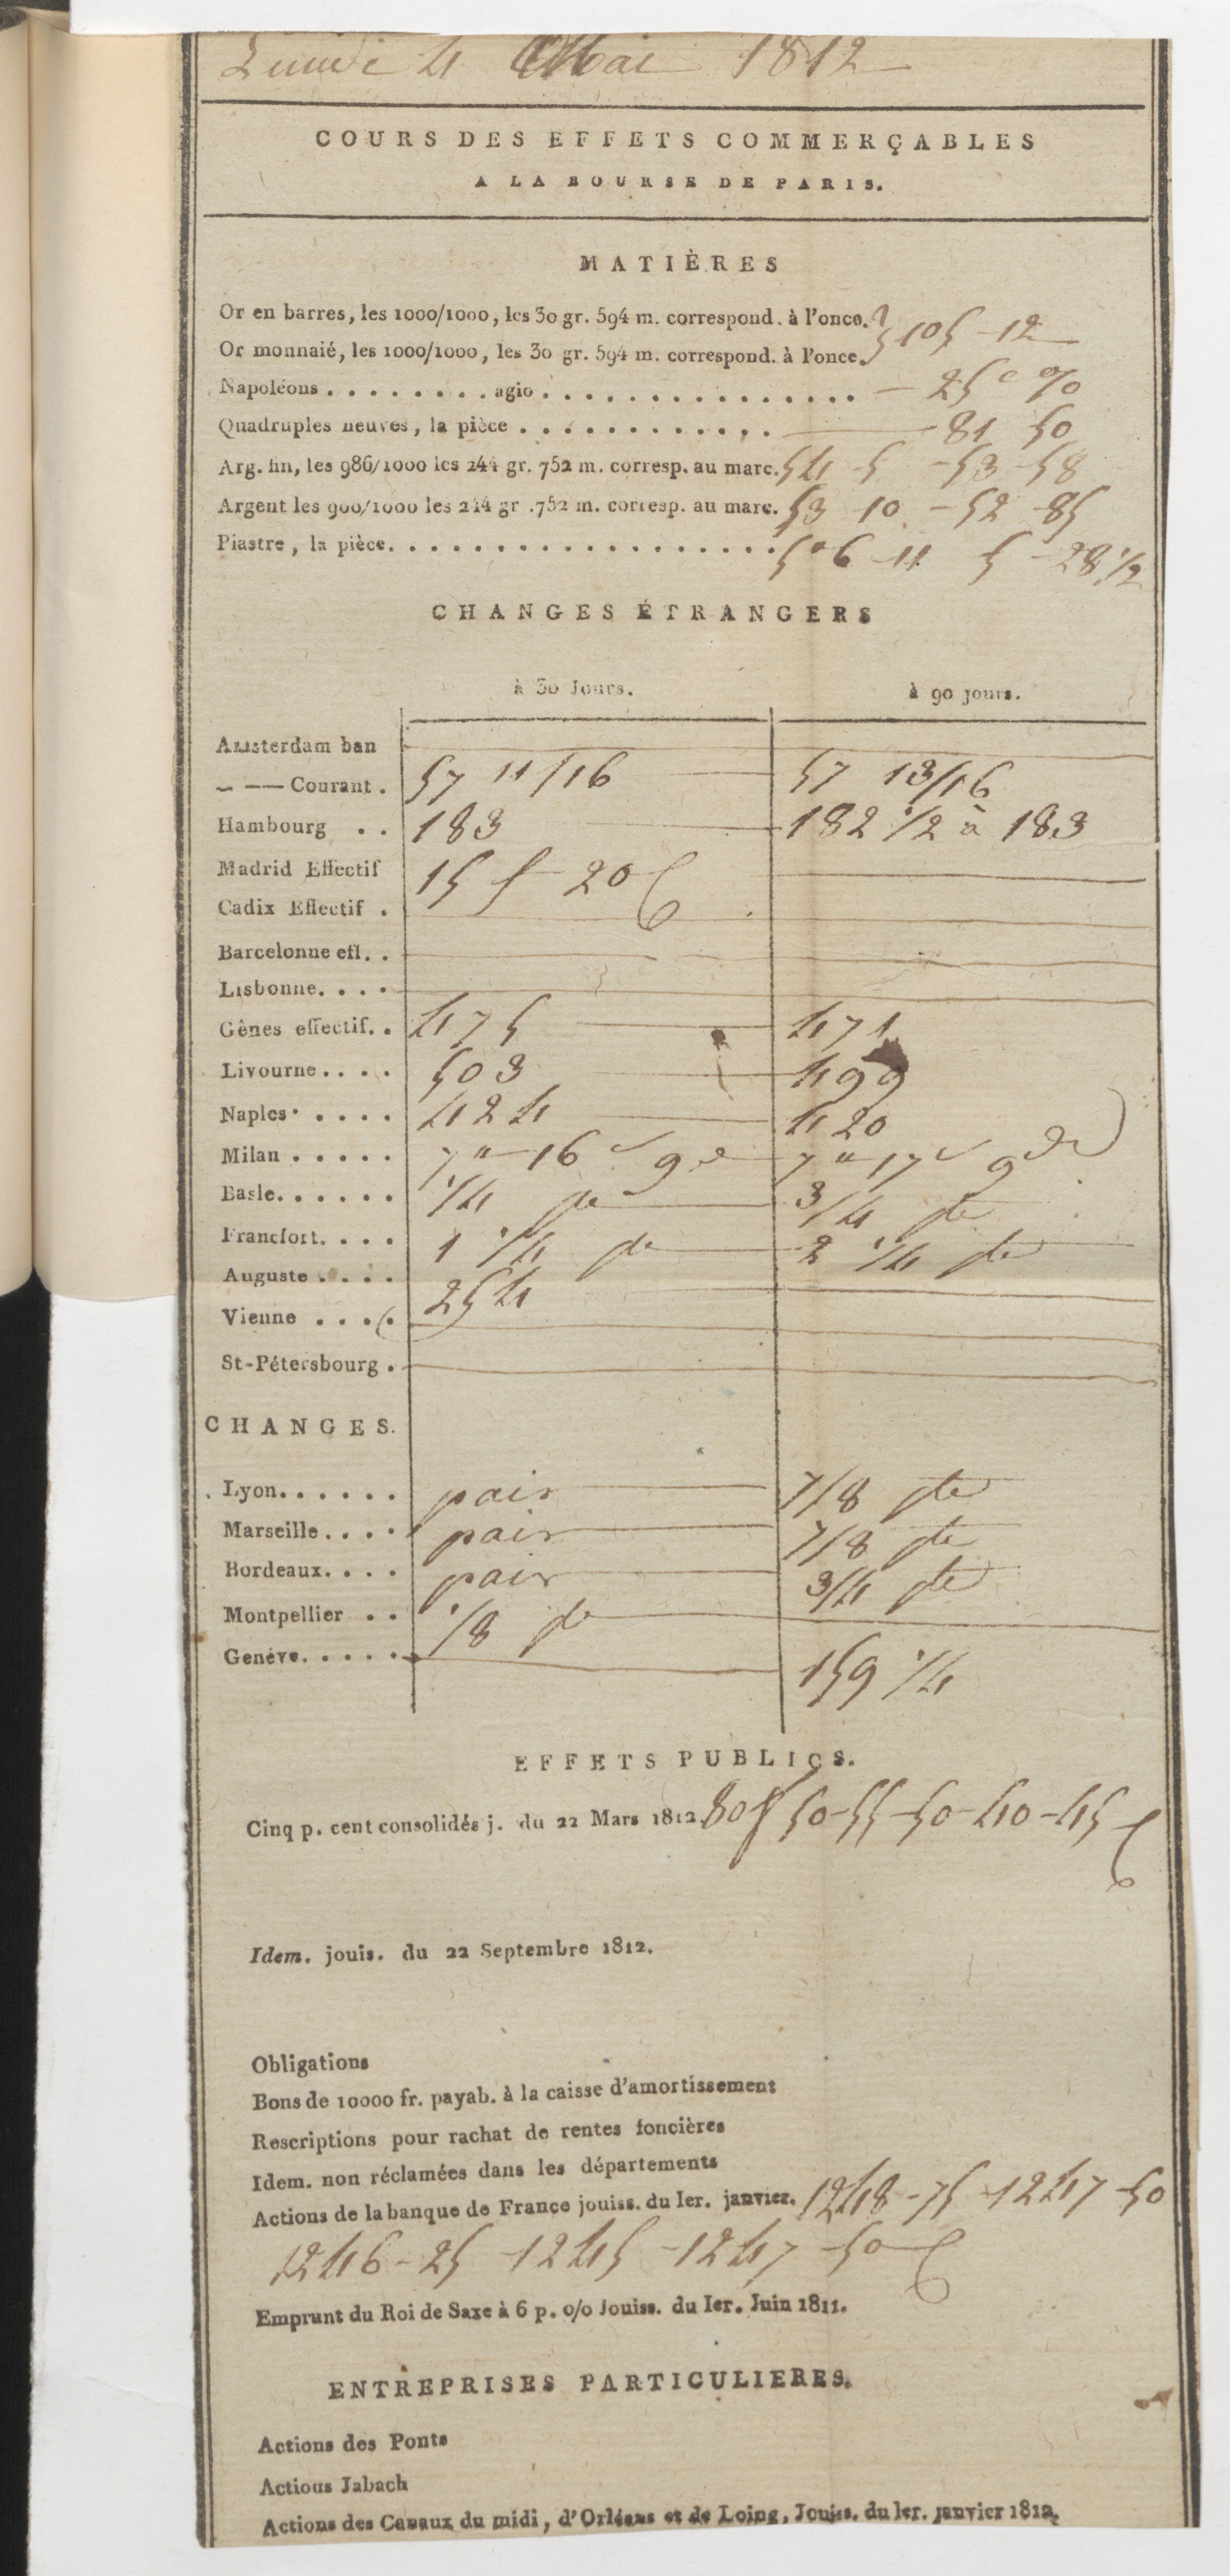 Lundi 4 Mai 1812
COURS DES EFFETS COMMERÇABLES
A LA BOURSE DE PARIS.
MATIÈRES
Or en barres, les 1000/1000, les 30 gr. 594 m. correspond. à l'once.
Or monnaié, les 1000/1000, les 30 gr. 594 m. correspond. à l'once. } 105 - 12
Napoléons ........ agio ................ - 25 c %
Quadruples neuves, la pièce ............ 81 50
Arg. fin, les 986/1000 les 244 gr. 752 m. corresp. au marc. 54 5 - 53 - 58
Argent les 900/1000 les 244 gr .752 m. corresp. au marc. 53 10 - 52 - 85
Piastre, la pièce. .................. 11 5 - 28 1/2
CHANGES ÉTRANGERS
à 30 Jours. à 90 jours.
Amsterdam ban
— — Courant . 57 11/16 57 13/16
Hambourg . . 183 182 1/2 à 183
Madrid Effectif 15 f 20 c
Cadix Effectif .
Barcelonne eff. .
Lisbonne. . . .
Gênes effectif. . 475 471
Livourne. . . . 503 499
Naples . . . . . 424 420
Milan . . . . . 7 " 16 s 9 d 7 " 17 s 9 d
Basle. . . . . . 1/4 pte 3/4 pte
Francfort. . . . 1 1/4 pte 2 1/4 pte
Auguste . . . . 254
Vienne . . . .
St-Pétersbourg .
CHANGES.
Lyon. . . . . . pair 7/8 pte
Marseille. . . . pair 7/8 pte
Bordeaux. . . . pair 3/4 pte
Montpellier . . 1/8 pte
Genéve. . . . . 159 1/4
EFFETS PUBLICS.
Cinq p. cent consolidés j. du 22 Mars 1812. 80 f 50 - 55 - 50 - 40 - 45 c
Idem. jouis. du 22 Septembre 1812.
Obligations
Bons de 10000 fr. payab. à la caisse d'amortissement
Rescriptions pour rachat de rentes foncières
Idem. non réclamées dans les départements
Actions de la banque de France jouiss. du Ier. janvier. 1248 - 75 - 1247 - 50
1246 - 25 - 1245 - 1247 - 50 c
Emprunt du Roi de Saxe à 6 p. 0/0 Jouiss. du Ier. Juin 1811.
ENTREPRISES PARTICULIERES.
Actions des Ponts
Actions Jabach
Actions des Canaux du midi, d'Orléans et de Loing, Jouiss. du Ier. janvier 1812.